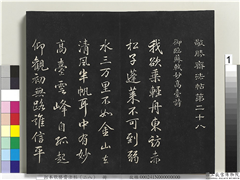 敬勝齋法帖第二十八
御臨蘇軾妙高臺詩
我欲乘輕舟東訪赤
松子蓬萊不可到弱
水三萬里不如金山去
清風半帆耳中有妙
高臺雲峰自孤起
仰觀初無路誰信平